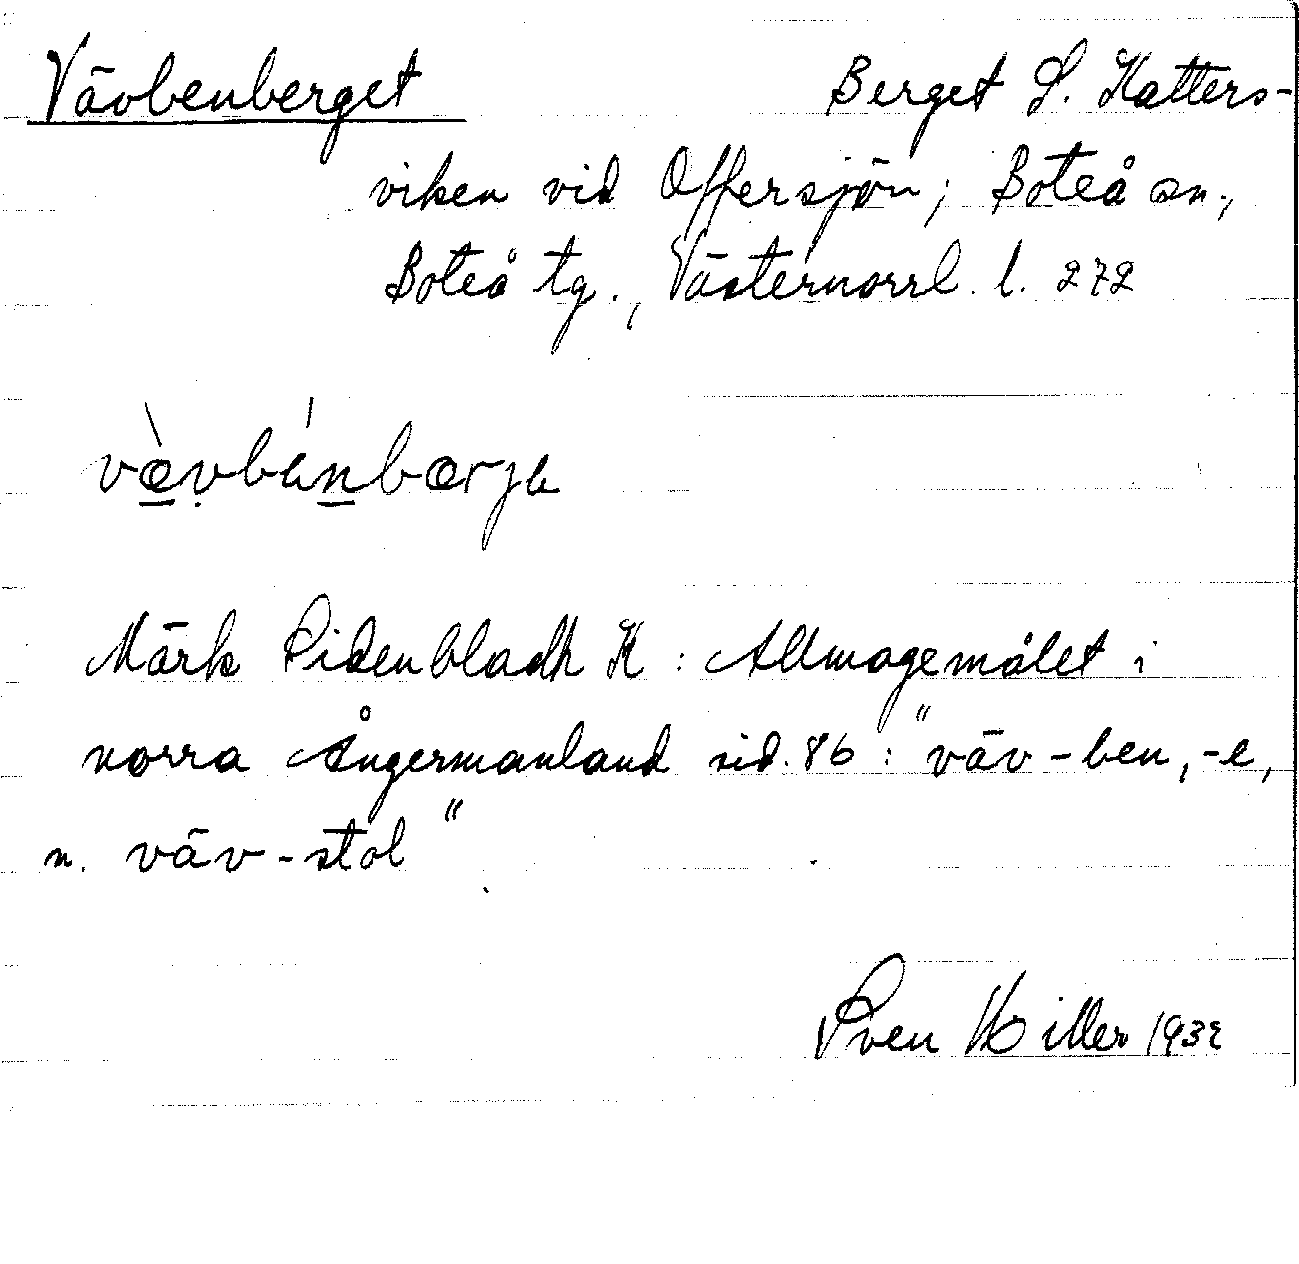 Vävbenberget Berget S. Katters-
viken vid Offersjön; Boteå sn.,
Boteå tg., Västernorrl. l. 272
væ̀vbénbærja
Märk Sidenbladh K: Allmogemålet i
norra Ångermanland sid. 86: "väv-ben, -e,
n. väv-stol"
Sven Hiller 1932